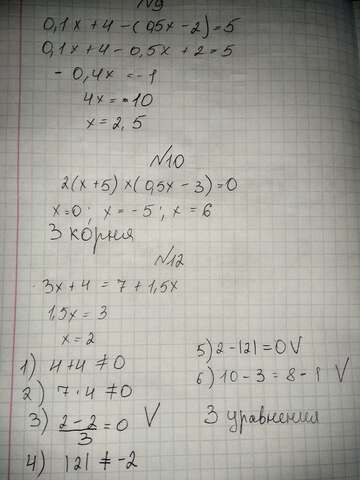 N9
0,1x + 4 - (0,5x - 2) = 5
0,1x + 4 - 0,5x + 2 = 5
- 0,4x = -1
4x = 10
x = 2,5
N10
2(x + 5) x (0,5x - 3) = 0
x = 0 ; x = -5 ; x = 6
3 корня
N12
3x + 4 = 7 + 1,5x
1,5x = 3
x = 2
1) 4 + 4 ≠ 0
2) 7 · 4 ≠ 0
3) (2 - 2)/3 = 0 V
4) |2| ≠ -2
5) 2 - |2| = 0 V
6) 10 - 3 = 8 - 1 V
3 уравнения